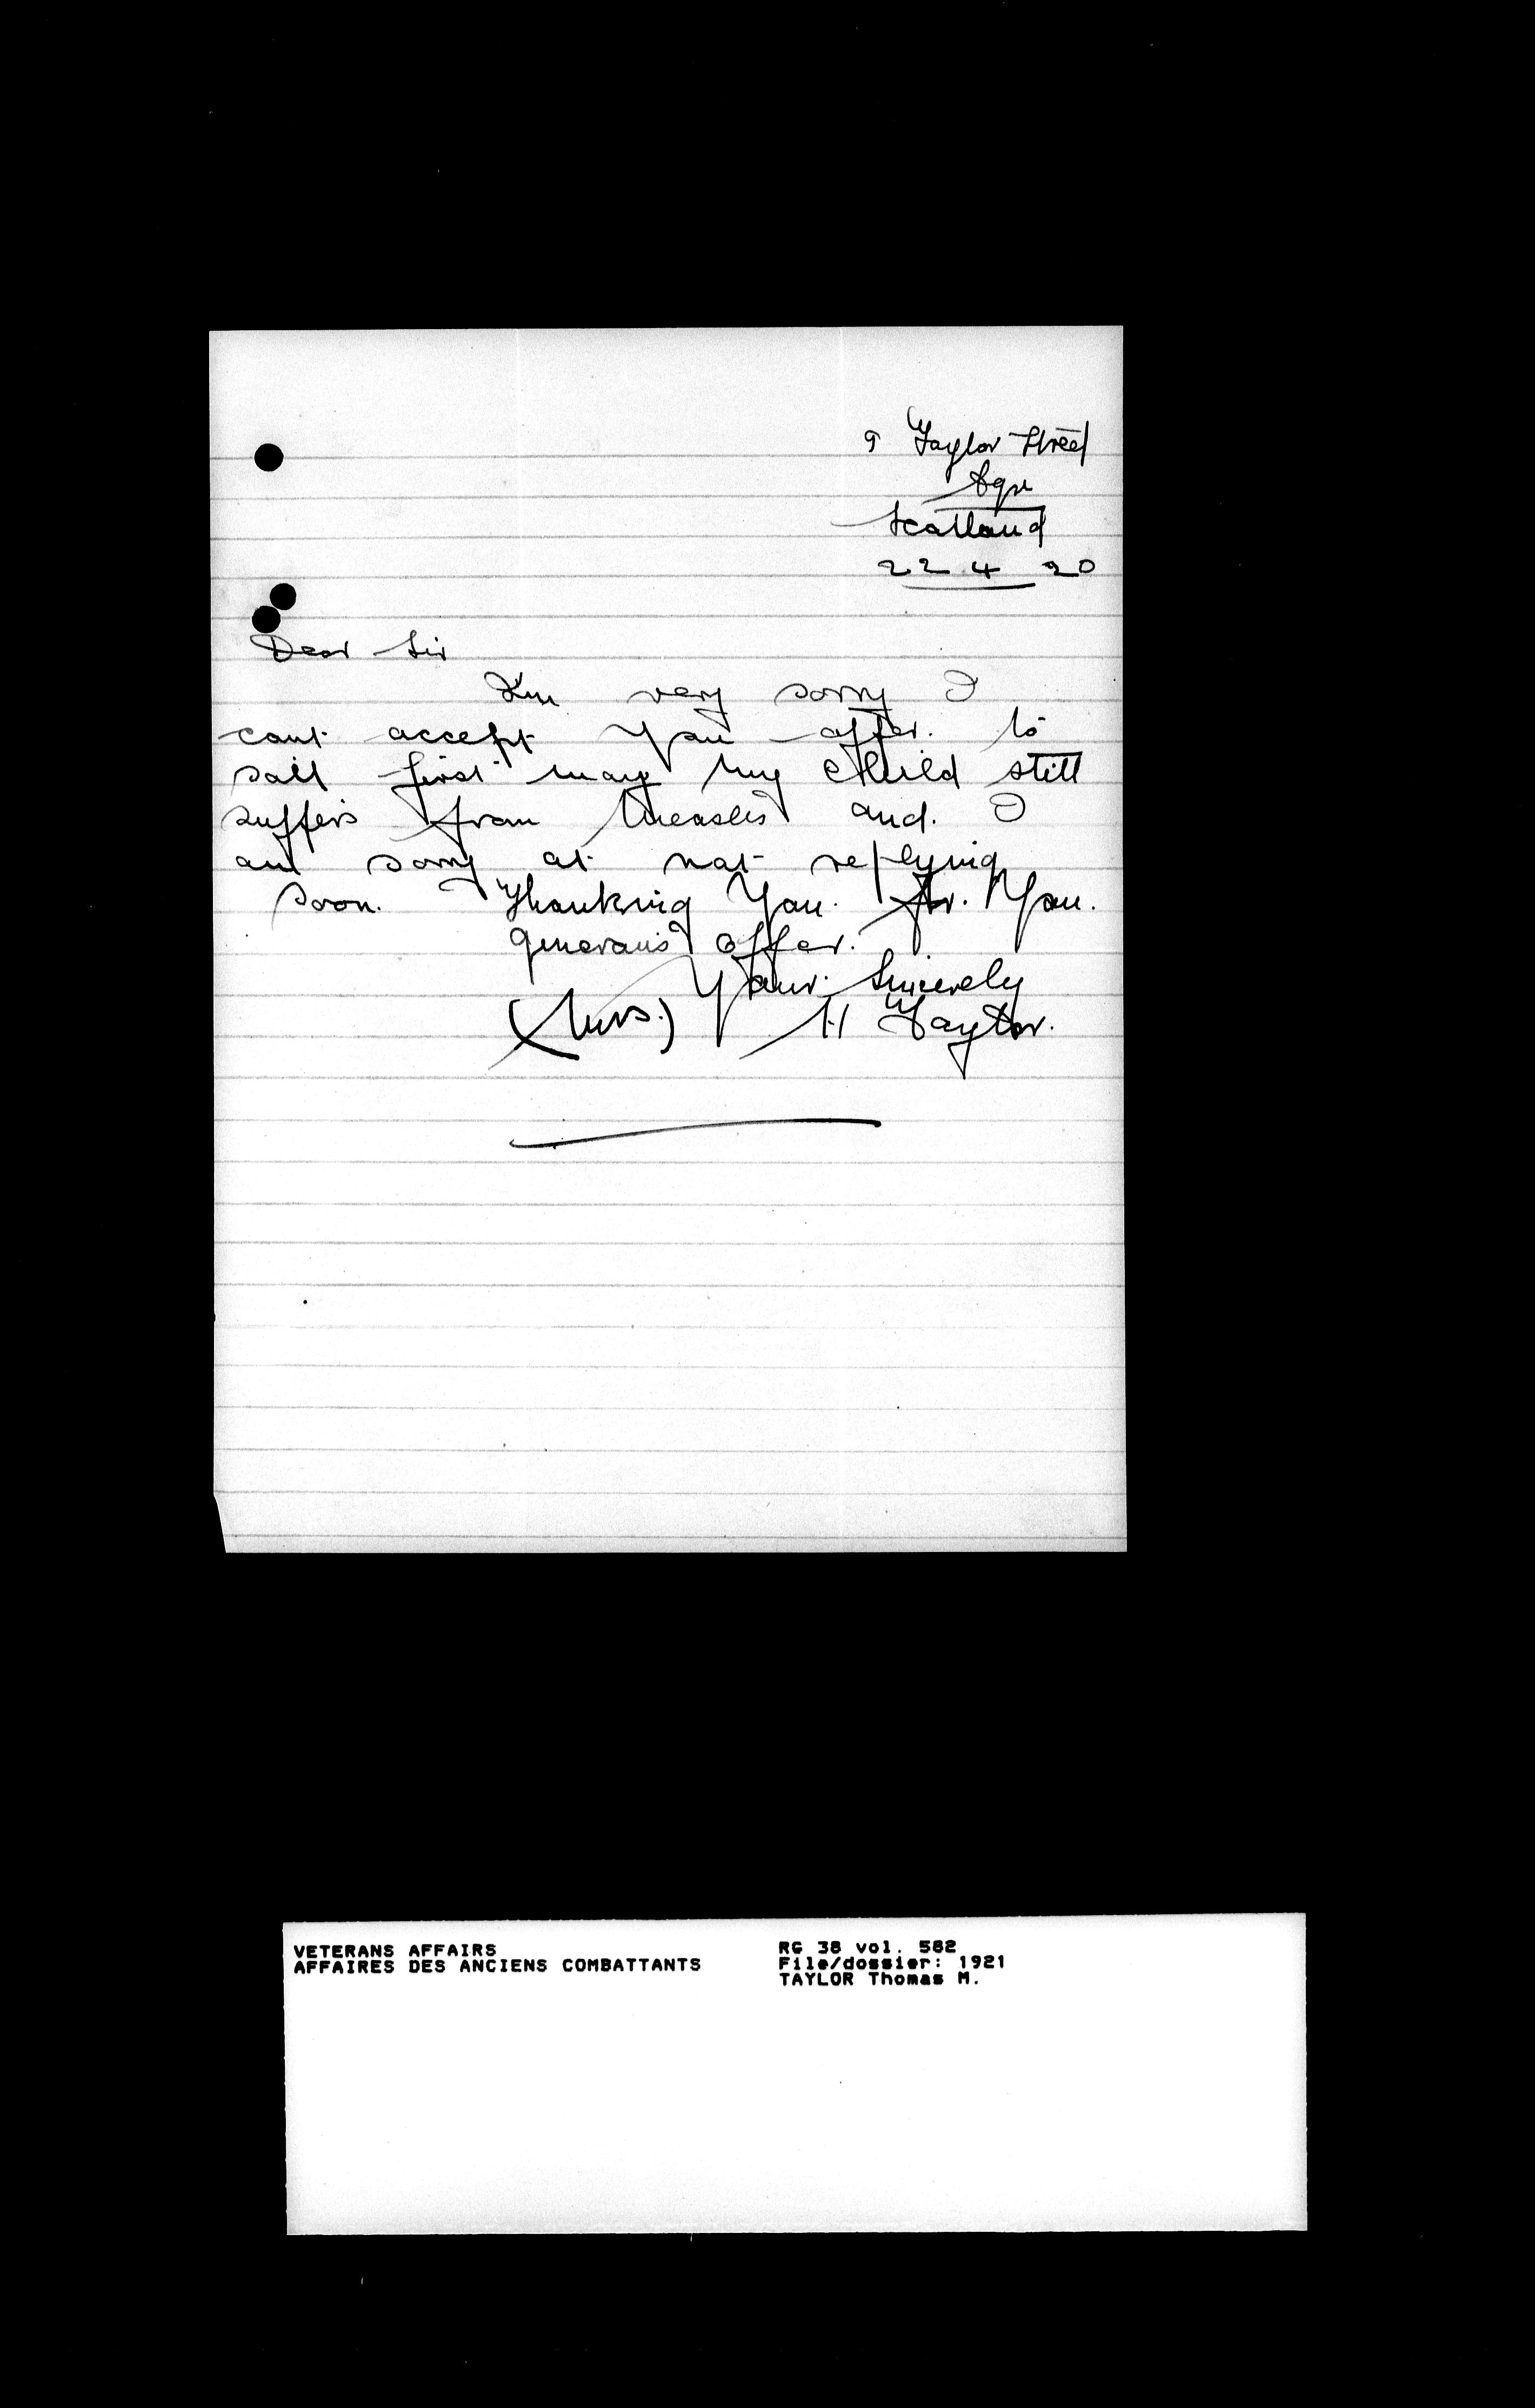 9 Taylor Street
Ayr
Scotland
22 4 20
Dear Sir
I'm very sorry I
cant accept You offer. to
sail first may my child still
suffers from Measles and. I
am sorry at not replying
soon. Thanking You. for. You.
generous offer.
Your. Sincerely
(Mrs.) H Taylor.
VETERANS AFFAIRS
AFFAIRES DES ANCIENS COMBATTANTS
RG 38 vol. 582
File/dossier: 1921
TAYLOR Thomas M.